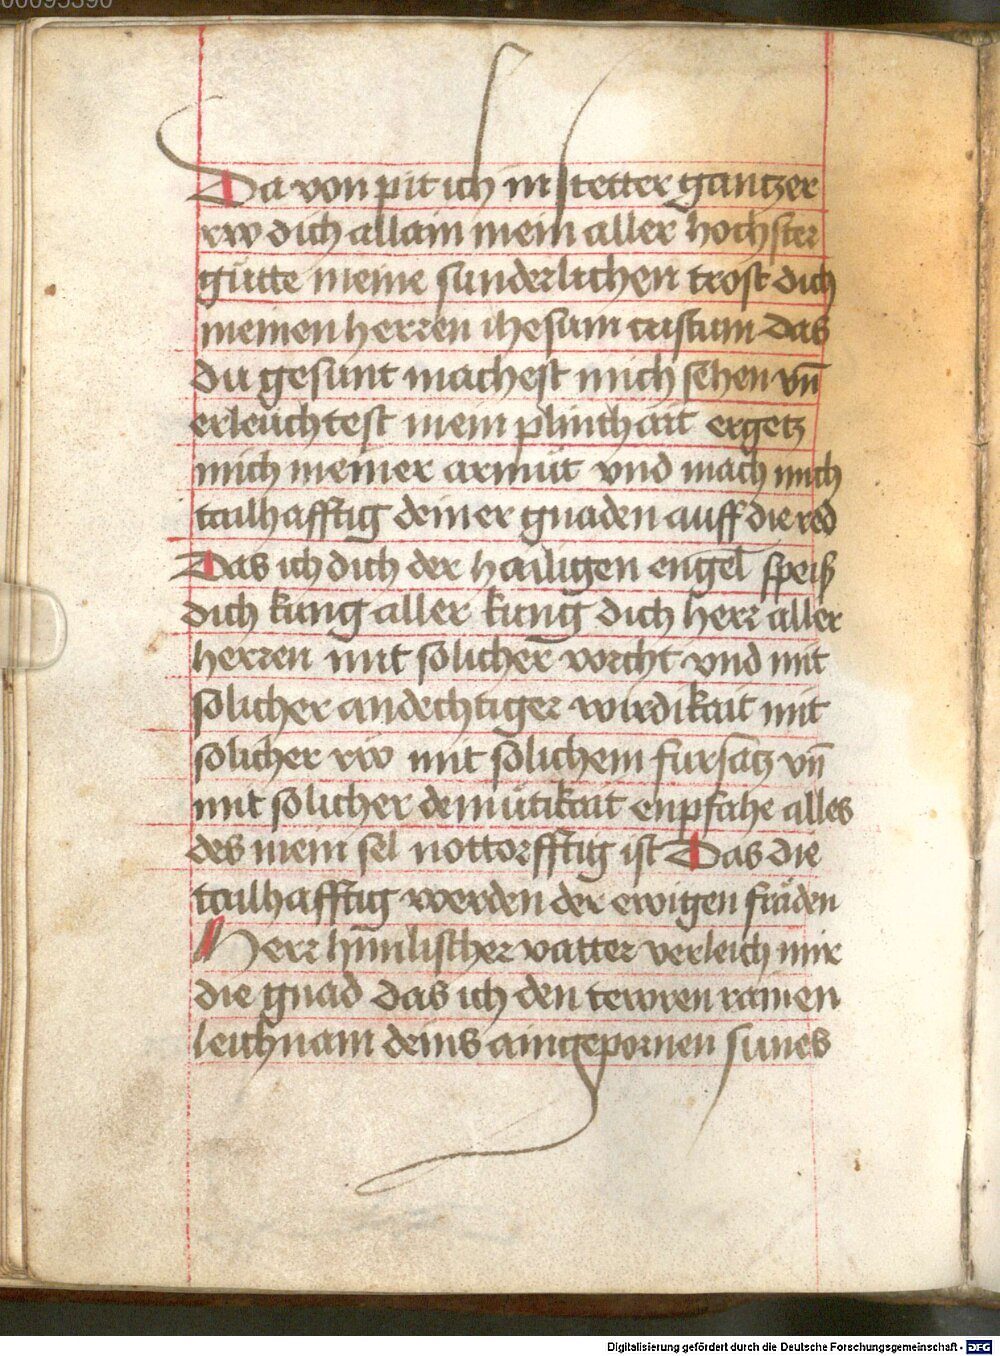 Da von pit ich in stetter gantzer
rw dich allain mein aller hochster
gütte meine sunderlichen trost dich
meinen herren ihesum cristum das
du gesunt machest mich sehen vn̄
erleuchtest mein plinthait ergetz
mich meiner armüt vnd mach mich
tailhafftig deiner gnaden auff die red
Das ich dich der hailigen engel speiß
dich kung aller kung dich herr aller
herren mit solicher vorcht vnd mit
solicher andechtiger wirdikait mit
solicher rw mit solichem fursatz vn̄
mit solicher demütikait enpfahe alles
des mein sel nottorfftig ist Das die
tailhafftig werden der ewigen fräden
Herr himlischer vatter verleich mir
die gnad das ich den tewren rainen
leichnam deins aingepornen sunes
Digitalisierung gefördert durch die Deutsche Forschungsgemeinschaft - DFG